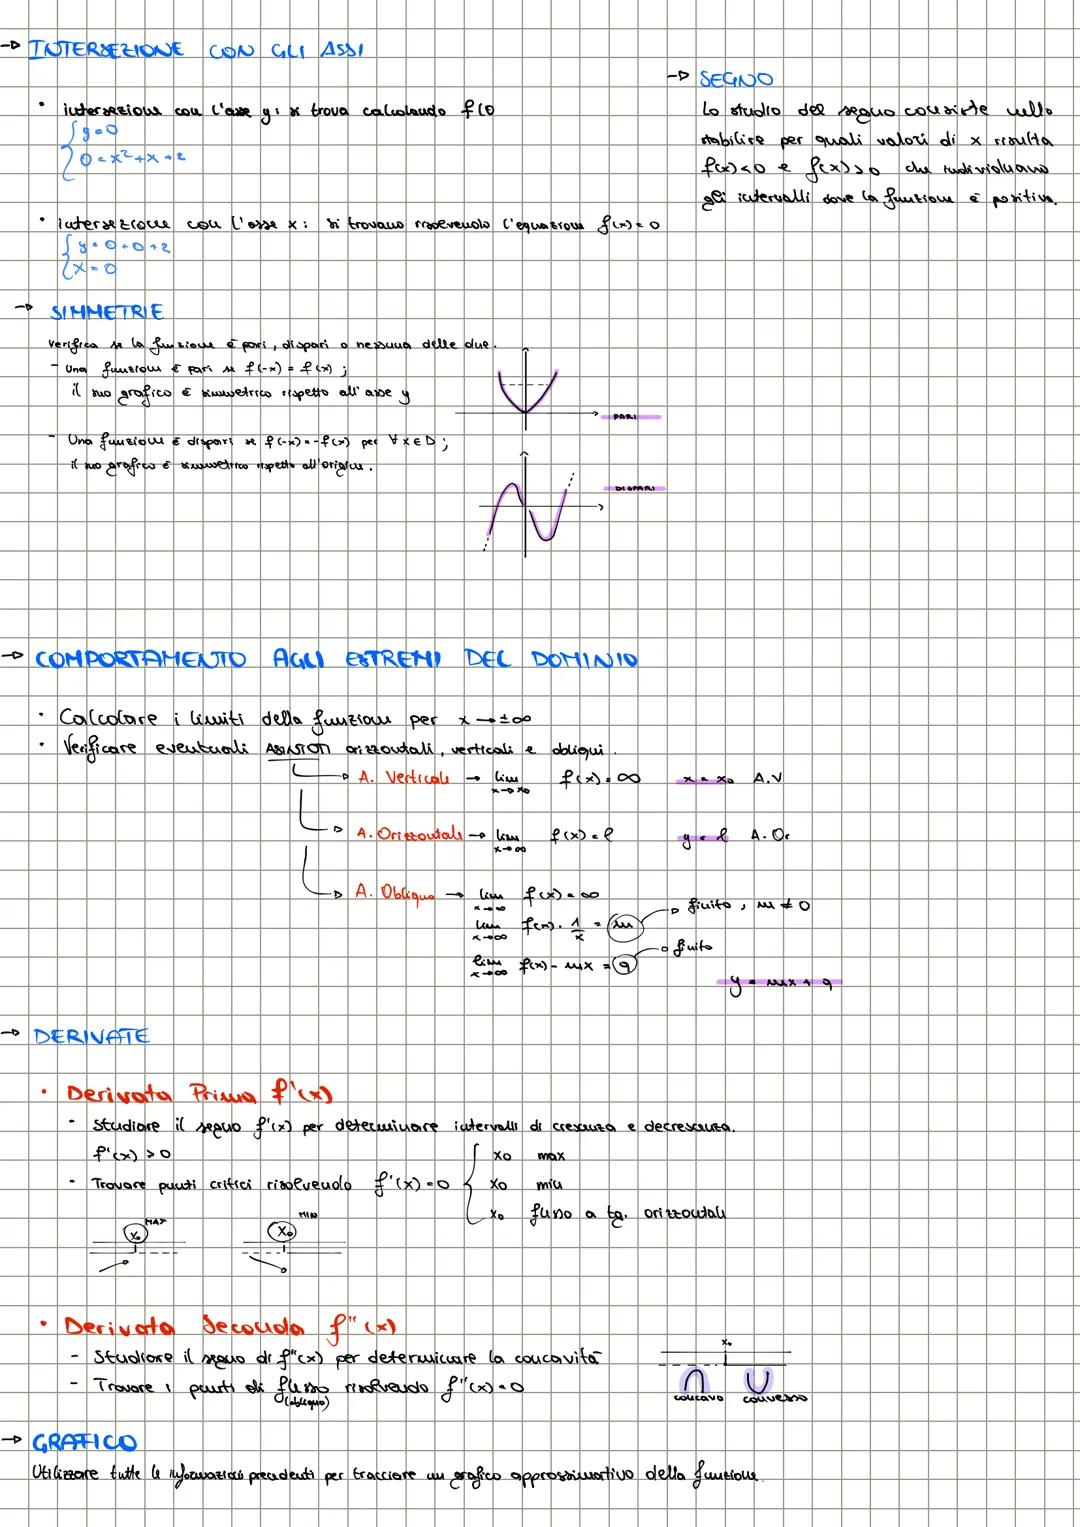 → INTERSEZIONE CON GLI ASSI
• intersezione con l'asse y: si trova calcolando f(0
{ y=0
{ 0=x²+x+2
• intersezione con l'asse x: si trovano risolvendo l'equazione f(x)=0
{ y=0+0+2
{ x=0
→ SEGNO
Lo studio del segno consiste nello
stabilire per quali valori di x risulta
f(x)<0 e f(x)>0 che individuano
gli intervalli dove la funzione è positiva.
→ SIMMETRIE
Verifica se la funzione è pari, dispari o nessuna delle due.
- Una funzione è pari se f(-x) = f(x) ;
il suo grafico è simmetrico rispetto all'asse y
PARI
- Una funzione è dispari se f(-x)=-f(x) per ∀x∈D ;
il suo grafico è simmetrico rispetto all'origine.
DISPARI
→ COMPORTAMENTO AGLI ESTREMI DEL DOMINIO
• Calcolare i limiti della funzione per x→±∞
• Verificare eventuali ASINTOTI orizzontali, verticali e obliqui.
→ A. Verticale → lim x→x₀ f(x)=∞ x=x₀ A.V
→ A. Orizzontale → lim x→∞ f(x)=l y=l A.Or
→ A. Obliquo → lim x→∞ f(x)=∞
lim x→∞ f(x)·1/x = m → finito, m≠0
lim x→∞ f(x)-mx = q → finito
y=mx+q
→ DERIVATE
• Derivata Prima f'(x)
- Studiare il segno f'(x) per determinare intervalli di crescenza e decrescenza.
f'(x)>0
- Trovare punti critici risolvendo f'(x)=0
{ x₀ max
{ x₀ min
{ x₀ flesso a tg. orizzontale
x₀ MAX
x₀ MIN
• Derivata Seconda f''(x)
- Studiare il segno di f''(x) per determinare la concavità
- Trovare i punti di flesso risolvendo f''(x)=0
(obliquo)
x₀
concavo convesso
→ GRAFICO
Utilizzare tutte le informazioni precedenti per tracciare un grafico approssimativo della funzione.